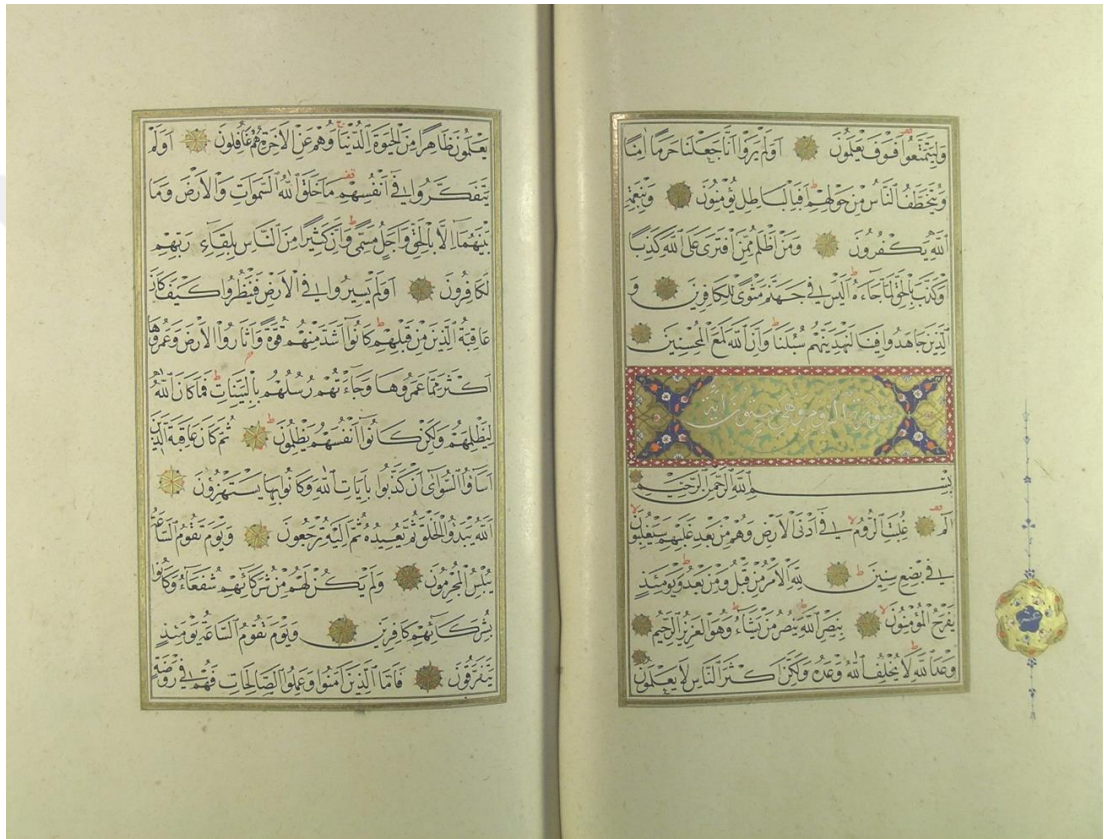 وَلِيَتَمَتَّعُوا فَسَوْفَ يَعْلَمُونَ اَوَلَمْ يَرَوْا اَنَّا جَعَلْنَا حَرَمًا اٰمِنًا
وَيُتَخَطَّفُ النَّاسُ مِنْ حَوْلِهِمْ اَفَبِالْبَاطِلِ يُؤْمِنُونَ وَبِنِعْمَةِ
اللّٰهِ يَكْفُرُونَ وَمَنْ اَظْلَمُ مِمَّنِ افْتَرٰى عَلَى اللّٰهِ كَذِبًا
اَوْ كَذَّبَ بِالْحَقِّ لَمَّا جَاءَهُ اَلَيْسَ فِي جَهَنَّمَ مَثْوًى لِلْكَافِرِينَ وَ
الَّذِينَ جَاهَدُوا فِينَا لَنَهْدِيَنَّهُمْ سُبُلَنَا وَاِنَّ اللّٰهَ لَمَعَ الْمُحْسِنِينَ
سورة الروم وهي ستون آية
بِسْمِ اللّٰهِ الرَّحْمٰنِ الرَّحِيمِ
الٓمٓ غُلِبَتِ الرُّومُ فِي اَدْنَى الْاَرْضِ وَهُمْ مِنْ بَعْدِ غَلَبِهِمْ سَيَغْلِبُونَ
فِي بِضْعِ سِنِينَ لِلّٰهِ الْاَمْرُ مِنْ قَبْلُ وَمِنْ بَعْدُ وَيَوْمَئِذٍ
يَفْرَحُ الْمُؤْمِنُونَ بِنَصْرِ اللّٰهِ يَنْصُرُ مَنْ يَشَاءُ وَهُوَ الْعَزِيزُ الرَّحِيمُ
وَعْدَ اللّٰهِ لَا يُخْلِفُ اللّٰهُ وَعْدَهُ وَلٰكِنَّ اَكْثَرَ النَّاسِ لَا يَعْلَمُونَ
يَعْلَمُونَ ظَاهِرًا مِنَ الْحَيٰوةِ الدُّنْيَا وَهُمْ عَنِ الْاٰخِرَةِ هُمْ غَافِلُونَ اَوَلَمْ
يَتَفَكَّرُوا فِي اَنْفُسِهِمْ مَا خَلَقَ اللّٰهُ السَّمٰوَاتِ وَالْاَرْضَ وَمَا
بَيْنَهُمَا اِلَّا بِالْحَقِّ وَاَجَلٍ مُسَمًّى وَاِنَّ كَثِيرًا مِنَ النَّاسِ بِلِقَاءِ رَبِّهِمْ
لَكَافِرُونَ اَوَلَمْ يَسِيرُوا فِي الْاَرْضِ فَيَنْظُرُوا كَيْفَ كَانَ
عَاقِبَةُ الَّذِينَ مِنْ قَبْلِهِمْ كَانُوا اَشَدَّ مِنْهُمْ قُوَّةً وَاَثَارُوا الْاَرْضَ وَعَمَرُوهَا
اَكْثَرَ مِمَّا عَمَرُوهَا وَجَاءَتْهُمْ رُسُلُهُمْ بِالْبَيِّنَاتِ فَمَا كَانَ اللّٰهُ
لِيَظْلِمَهُمْ وَلٰكِنْ كَانُوا اَنْفُسَهُمْ يَظْلِمُونَ ثُمَّ كَانَ عَاقِبَةَ الَّذِينَ
اَسَاؤُا السُّوآٰى اَنْ كَذَّبُوا بِاٰيَاتِ اللّٰهِ وَكَانُوا بِهَا يَسْتَهْزِؤُنَ
اَللّٰهُ يَبْدَؤُا الْخَلْقَ ثُمَّ يُعِيدُهُ ثُمَّ اِلَيْهِ تُرْجَعُونَ وَيَوْمَ تَقُومُ السَّاعَةُ
يُبْلِسُ الْمُجْرِمُونَ وَلَمْ يَكُنْ لَهُمْ مِنْ شُرَكَائِهِمْ شُفَعٰٓؤُا وَكَانُوا
بِشُرَكَائِهِمْ كَافِرِينَ وَيَوْمَ تَقُومُ السَّاعَةُ يَوْمَئِذٍ
يَتَفَرَّقُونَ فَاَمَّا الَّذِينَ اٰمَنُوا وَعَمِلُوا الصَّالِحَاتِ فَهُمْ فِي رَوْضَةٍ